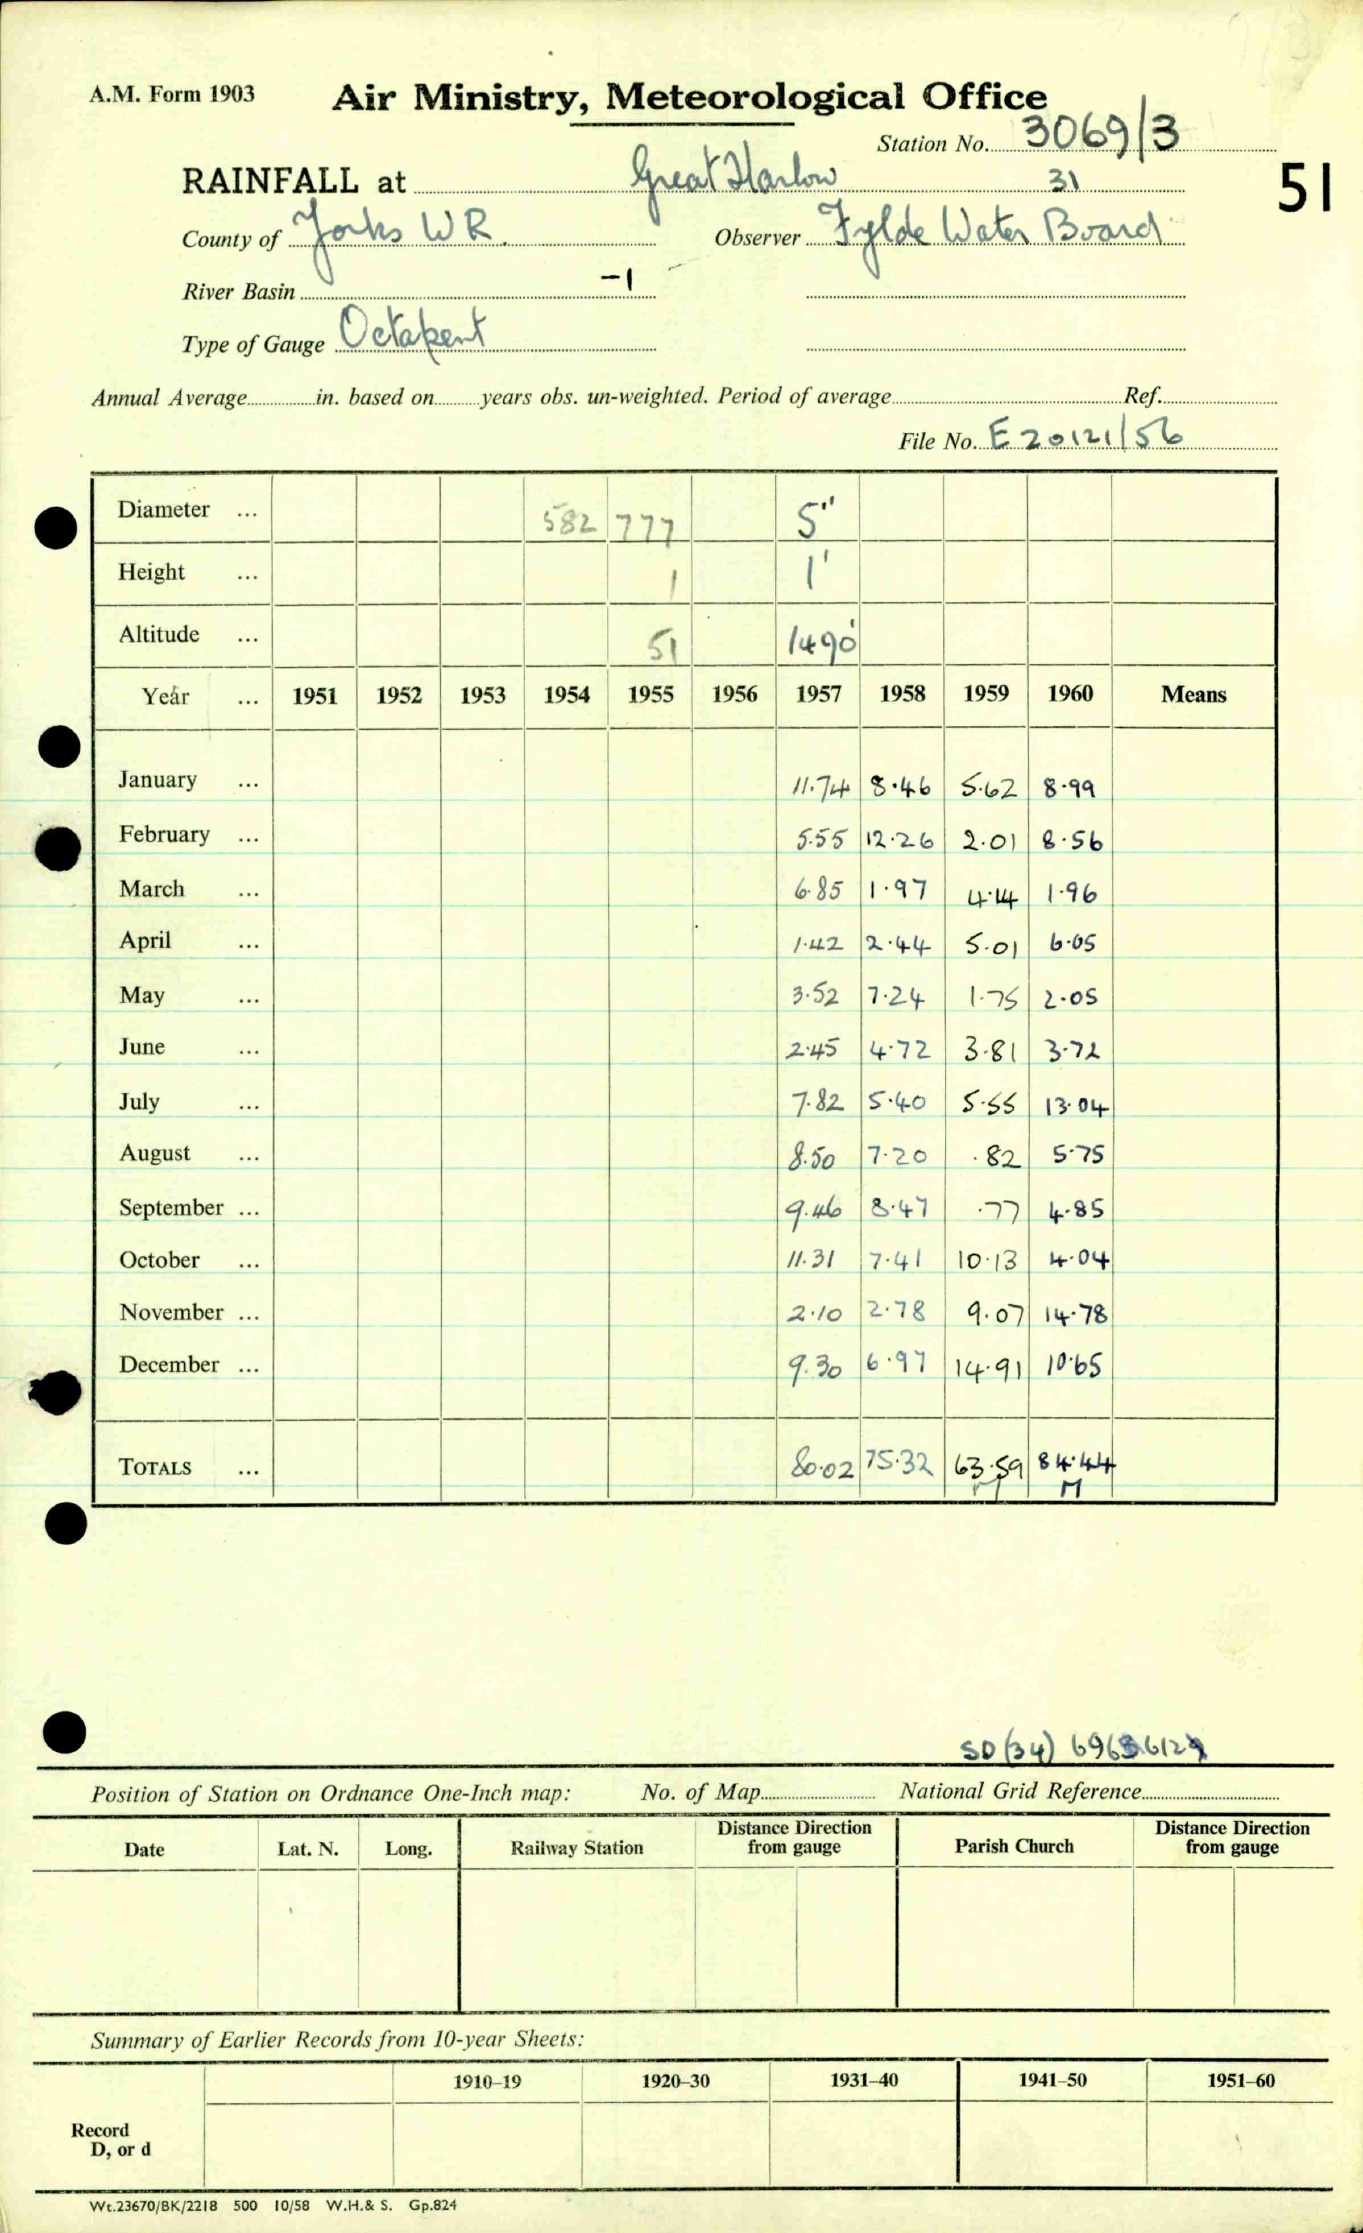 A.M. Form 1903 Air Ministry, Meteorological Office
Station No. 3069/3
RAINFALL at Great Harlow 31
51
County of Yorks WR. Observer Fylde Water Board
River Basin -1
Type of Gauge Octapent
Annual Average in. based on years obs. un-weighted. Period of average Ref.
File No. E20121/56
Diameter ... 582 777 5"
Height ... 1 1'
Altitude ... 51 1490'
Year ... 1951 1952 1953 1954 1955 1956 1957 1958 1959 1960 Means
January ... 11.74 8.46 5.62 8.99
February ... 5.55 12.26 2.01 8.56
March ... 6.85 1.97 4.14 1.96
April ... 1.42 2.44 5.01 6.05
May ... 3.52 7.24 1.75 2.05
June ... 2.45 4.72 3.81 3.72
July ... 7.82 5.40 5.55 13.04
August ... 8.50 7.20 .82 5.75
September ... 9.46 8.47 .77 4.85
October ... 11.31 7.41 10.13 4.04
November ... 2.10 2.78 9.07 14.78
December ... 9.30 6.97 14.91 10.65
TOTALS ... 80.02 75.32 63.59 84.44
M M
SD (34)
Position of Station on Ordnance One-Inch map: No. of Map National Grid Reference
Date Lat. N. Long. Railway Station Distance Direction from gauge Parish Church Distance Direction from gauge
Summary of Earlier Records from 10-year Sheets:
1910–19 1920–30 1931–40 1941–50 1951–60
Record
D, or d
Wt.23670/BK/2218 500 10/58 W.H.& S. Gp.824